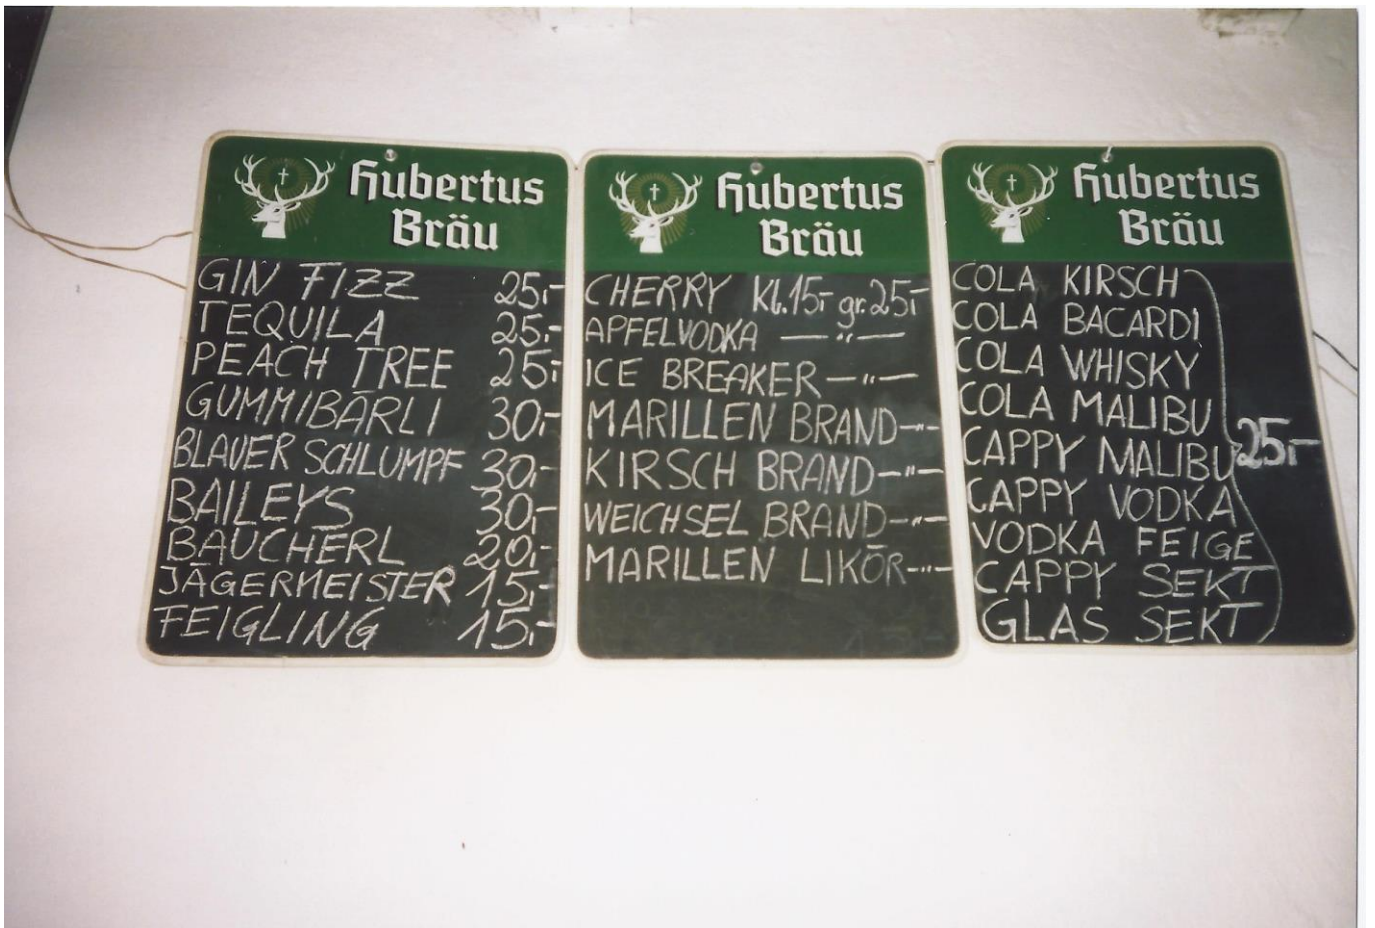 Hubertus
Bräu
GIN FIZZ 25,-
TEQUILA 25,-
PEACH TREE 25,-
GUMMIBÄRLI 30,-
BLAUER SCHLUMPF 30,-
BAILEYS 30,-
BAUCHERL 20,-
JÄGERMEISTER 15,-
FEIGLING 15,-
Hubertus
Bräu
CHERRY Kl. 15,- gr. 25,-
APFELVODKA — " —
ICE BREAKER — " —
MARILLEN BRAND — " —
KIRSCH BRAND — " —
WEICHSEL BRAND — " —
MARILLEN LIKÖR — " —
Hubertus
Bräu
COLA KIRSCH
COLA BACARDI
COLA WHISKY
COLA MALIBU
CAPPY MALIBU 25,-
CAPPY VODKA
VODKA FEIGE
CAPPY SEKT
GLAS SEKT